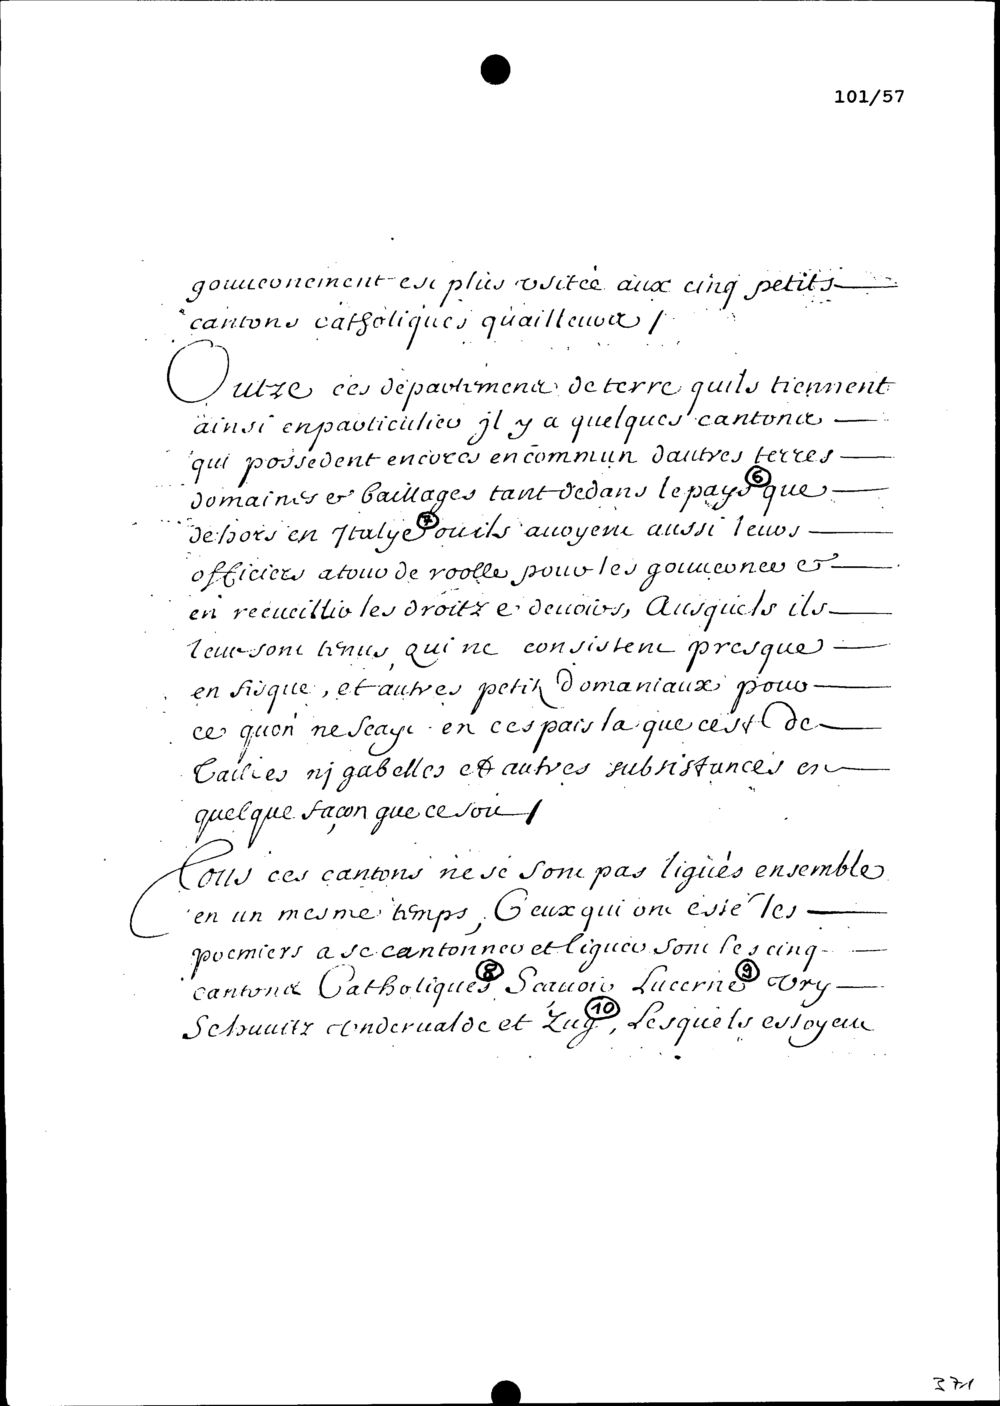 101/57
gouuernement est plus usitée aux cinq petits
cantons catholiques quailleurs /
Outre ces departemens de terre quils tiennent
ainsi enparticulier jl y a quelques cantons
qui possedent encores encommun dautres terres
domaines et baillages tant dedans le pays (6) que
dehors en Italye (7) ou ils auoyent aussi leurs
officiers atour de roolle pour les gouuerner et
en recueillir les droitz et deuoirs, Ausquels ils
leur sont tenus, qui ne consistent presque
en fisque, et autres petitz Domaniaux pour
ce quon ne scayt en ces pais la que cest De
tailles nj gabelles et autres subsistances en
quelque façon que ce soit /
Tous ces cantons ne se sont pas ligués ensemble
en un mesme temps, Ceux qui ont esté les
premiers a se cantonner et liguer sont les cinq
cantons Catholiques (8) Scauoir Lucerne (9) Ury
Schuuitz Underualde et Zug (10), Lesquels estoyent
371